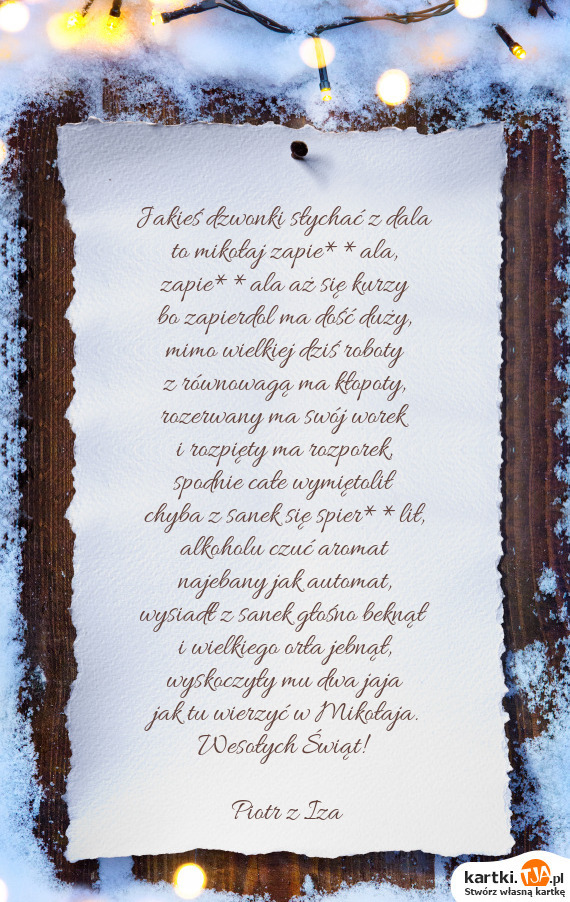 Jakieś dzwonki słychać z dala
to mikołaj zapie* * ala,
zapie* * ala aż się kurzy
bo zapierdol ma dość duży,
mimo wielkiej dziś roboty
z równowagą ma kłopoty,
rozerwany ma swój worek
i rozpięty ma rozporek,
spodnie całe wymiętolił
chyba z sanek się spier* * lił,
alkoholu czuć aromat
najebany jak automat,
wysiadł z sanek głośno beknął
i wielkiego orła jebnął,
wyskoczyły mu dwa jaja
jak tu wierzyć w Mikołaja.
Wesołych Świąt!
Piotr z Iza
kartki.TJA.pl
Stwórz własną kartkę